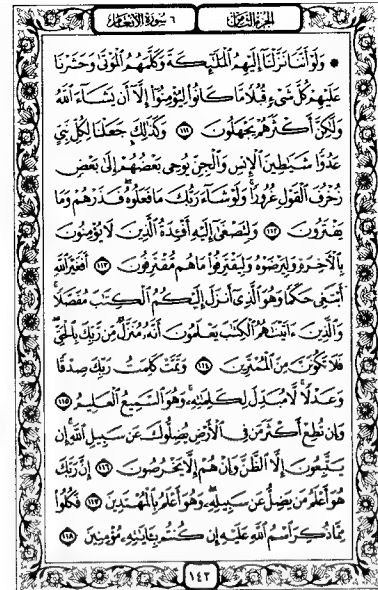 الجزء الثامن ٦ سورة الأنعام
۞ وَلَوْ أَنَّنَا نَزَّلْنَا إِلَيْهِمُ الْمَلَٰٓئِكَةَ وَكَلَّمَهُمُ الْمَوْتَىٰ وَحَشَرْنَا
عَلَيْهِمْ كُلَّ شَيْءٍ قُبُلًا مَّا كَانُوا لِيُؤْمِنُوٓا إِلَّآ أَن يَشَآءَ اللَّهُ
وَلَٰكِنَّ أَكْثَرَهُمْ يَجْهَلُونَ ١١١ وَكَذَٰلِكَ جَعَلْنَا لِكُلِّ نَبِيٍّ
عَدُوًّا شَيَٰطِينَ الْإِنسِ وَالْجِنِّ يُوحِي بَعْضُهُمْ إِلَىٰ بَعْضٍ
زُخْرُفَ الْقَوْلِ غُرُورًا وَلَوْ شَآءَ رَبُّكَ مَا فَعَلُوهُ فَذَرْهُمْ وَمَا
يَفْتَرُونَ ١١٢ وَلِتَصْغَىٰٓ إِلَيْهِ أَفْـِٔدَةُ الَّذِينَ لَا يُؤْمِنُونَ
بِالْأٓخِرَةِ وَلِيَرْضَوْهُ وَلِيَقْتَرِفُوا مَا هُم مُّقْتَرِفُونَ ١١٣ أَفَغَيْرَ اللَّهِ
أَبْتَغِي حَكَمًا وَهُوَ الَّذِيٓ أَنزَلَ إِلَيْكُمُ الْكِتَٰبَ مُفَصَّلًا
وَالَّذِينَ ءَاتَيْنَٰهُمُ الْكِتَٰبَ يَعْلَمُونَ أَنَّهُ مُنَزَّلٌ مِّن رَّبِّكَ بِالْحَقِّ
فَلَا تَكُونَنَّ مِنَ الْمُمْتَرِينَ ١١٤ وَتَمَّتْ كَلِمَتُ رَبِّكَ صِدْقًا
وَعَدْلًا لَّا مُبَدِّلَ لِكَلِمَٰتِهِ وَهُوَ السَّمِيعُ الْعَلِيمُ ١١٥
وَإِن تُطِعْ أَكْثَرَ مَن فِي الْأَرْضِ يُضِلُّوكَ عَن سَبِيلِ اللَّهِ إِن
يَتَّبِعُونَ إِلَّا الظَّنَّ وَإِنْ هُمْ إِلَّا يَخْرُصُونَ ١١٦ إِنَّ رَبَّكَ
هُوَ أَعْلَمُ مَن يَضِلُّ عَن سَبِيلِهِ وَهُوَ أَعْلَمُ بِالْمُهْتَدِينَ ١١٧ فَكُلُوا
مِمَّا ذُكِرَ اسْمُ اللَّهِ عَلَيْهِ إِن كُنتُم بِـَٔايَٰتِهِ مُؤْمِنِينَ ١١٨
١٤٢